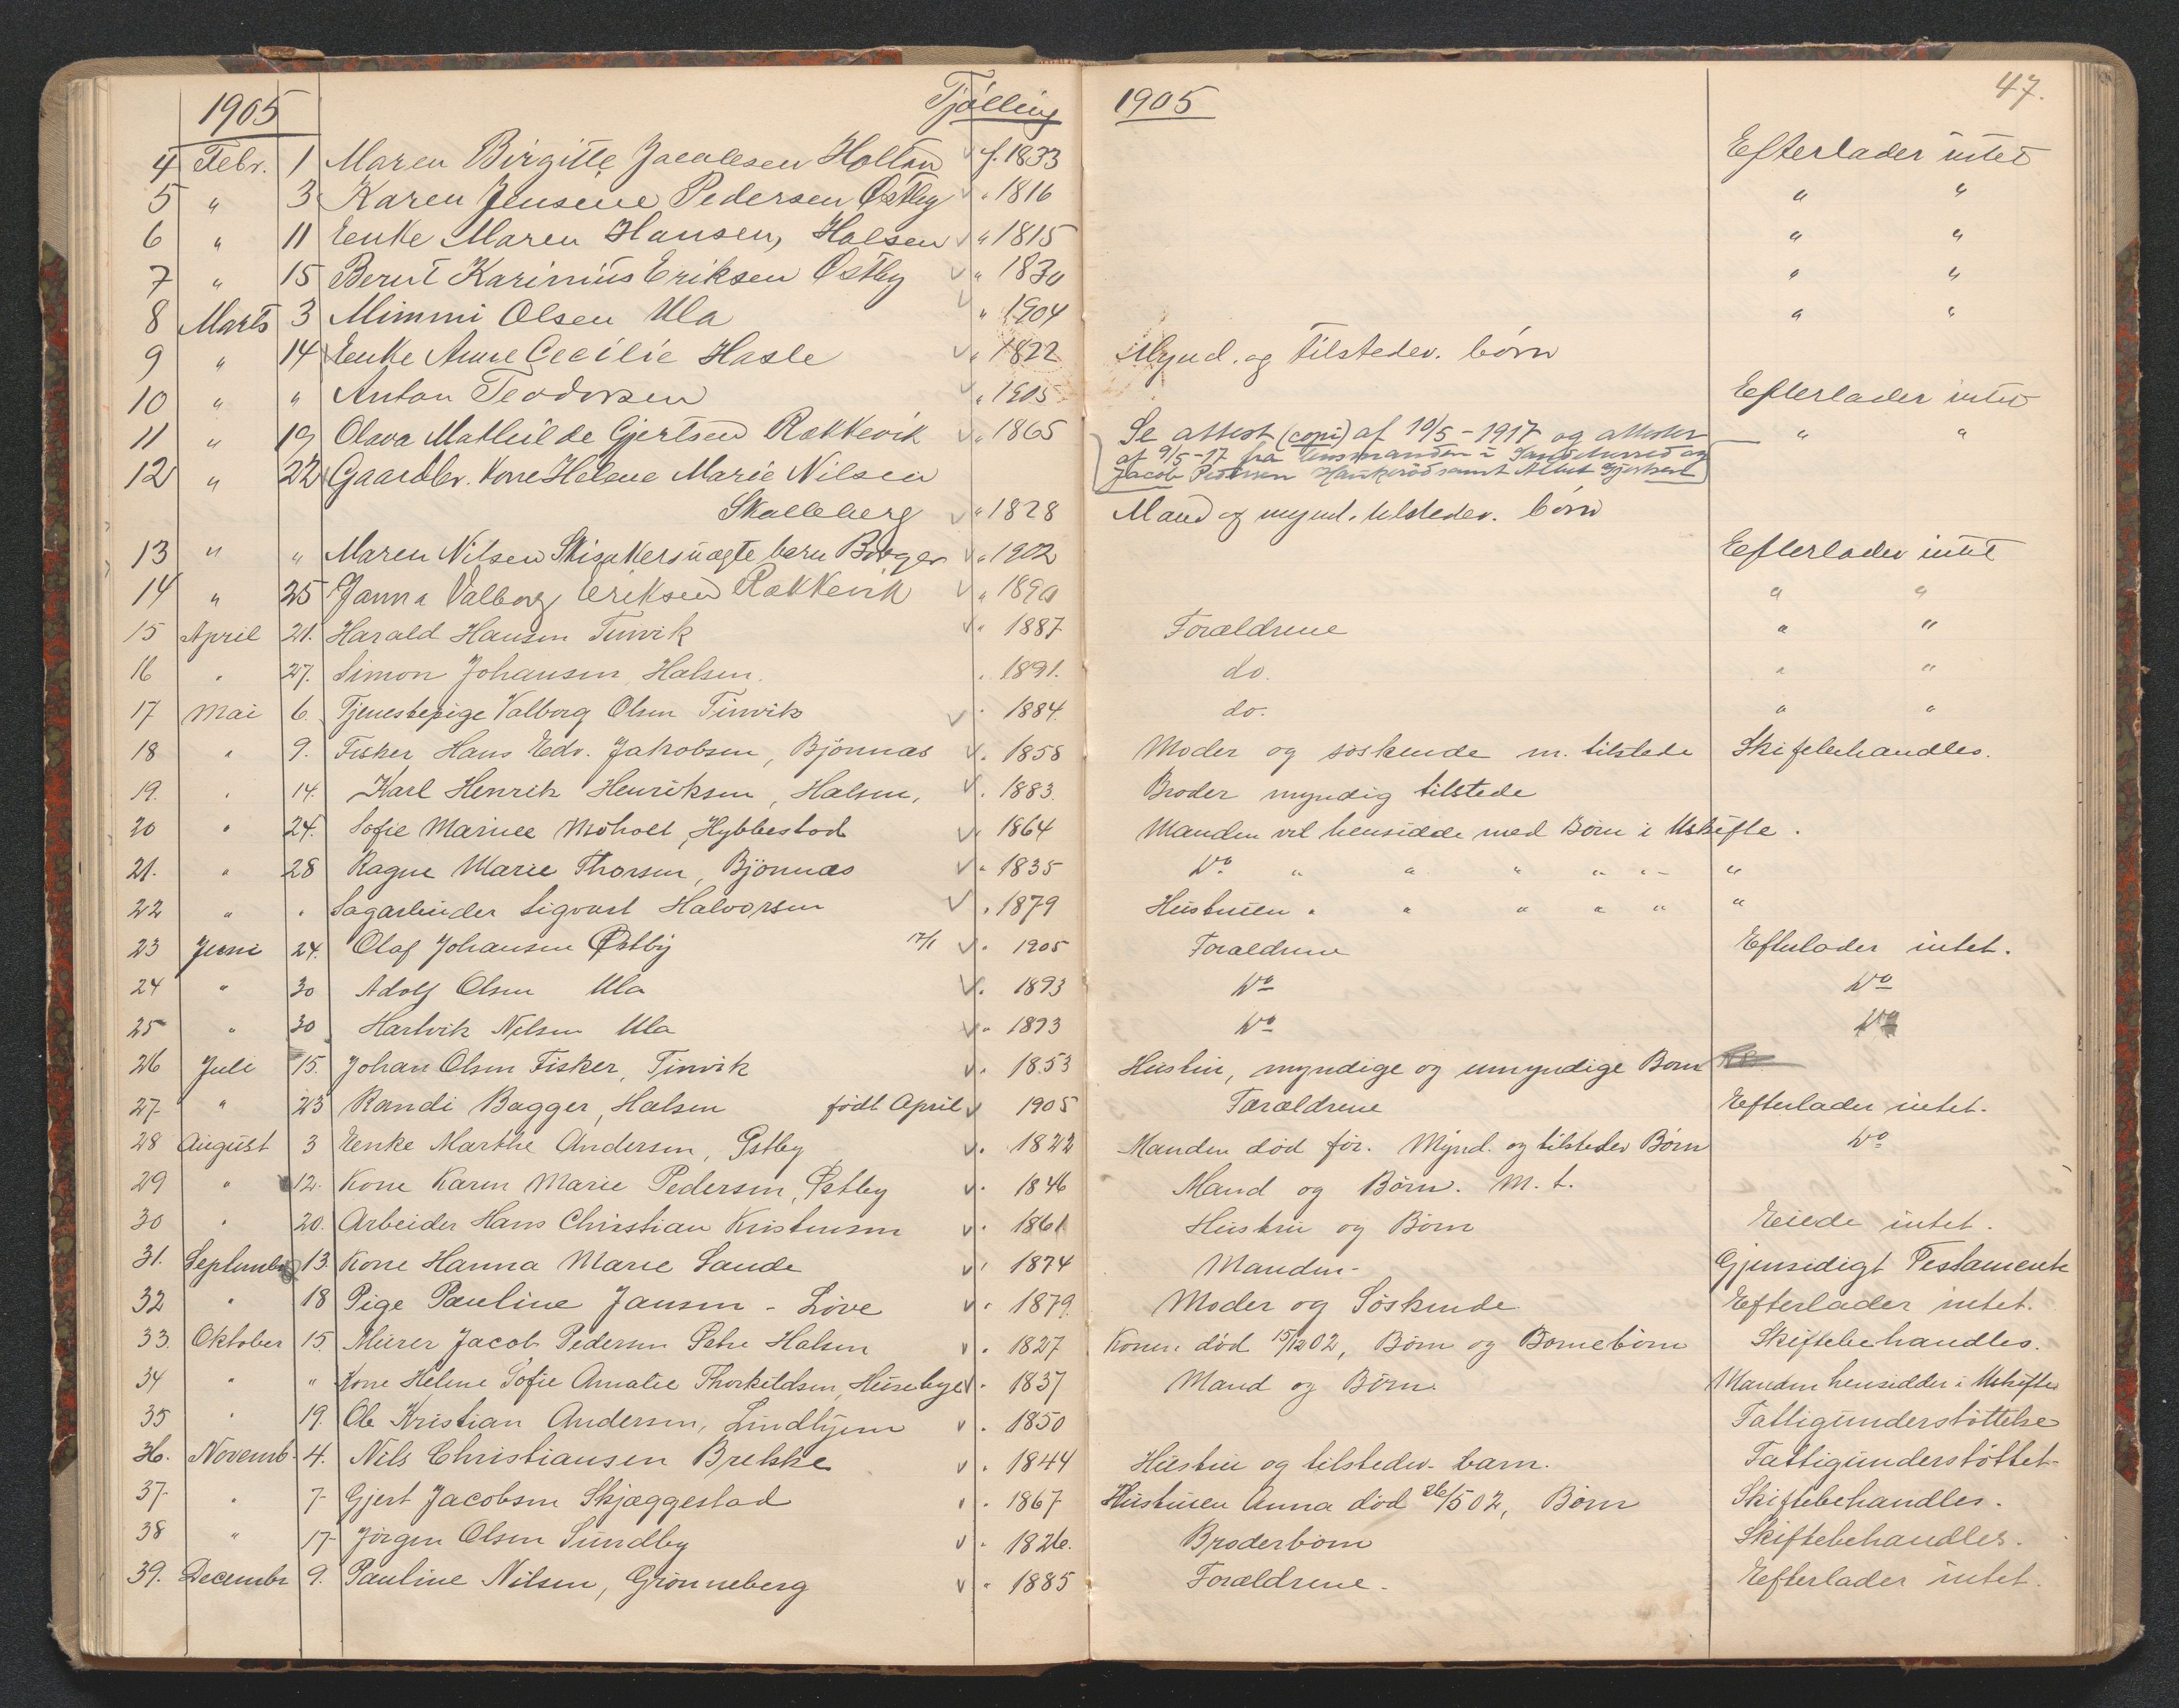 1905 Tjølling 1905 47.
4 Febr. 1 Maren Birgitte Jacobsen Holtan f. 1833 Efterlader intet
5 " 3 Karen Jensine Pedersen Østby " 1816 " "
6 " 11 Enke Maren Hansen, Halsen " 1815 " "
7 " 15 Bernt Karinius Eriksen Østby " 1830 " "
8 Marts 3 Mimmi Olsen Ula " 1904 " "
9 " 14 Enke Anne Cecilie Hasle " 1822 Mynd. og tilstedev. børn
10 " " Anton Teodorsen " 1905 Efterlader intet
11 " 19 Olava Mathilde Gjertsen Rakkevik " 1865 Se attest (copi) af 10/5-1917 og attester " "
af 9/5-17 fra lensmanden i Sandeherred og
12 " 22 Gaardbr. Kone Helene Marie Nilsen Jacob Pedersen Haukerød samt Albert Gjertsen
Skalleberg " 1828 Mand og mynd. tilstedev. børn
13 " " Maren Nilsen Skisakers uægte barn Borger " 1902 Efterlader intet
14 " 25 Janna Valborg Eriksen Rakkevik " 1890 " "
15 April 21. Harald Hansen Tinvik " 1887 Forældrene " "
16 " 27. Simon Johansen, Halsen. " 1891. do. " "
17 Mai 6. Tjenestepige Valborg Olsen Tinvik " 1884. do. " "
18 " 9. Fisker Hans Edv. Jakobsen, Bjønnæs " 1858 Moder og søskende m. tilstede Skiftebehandles.
19. " 14. Karl Henrik Henriksen, Halsen, " 1883. Broder myndig tilstede
20 " 24. Sofie Marnee Moholt, Hybbestad " 1864 Manden vil hensidde med Børn i Uskifte.
21. " 28 Ragne Marie Thorsen, Bjønnæs " 1835 Do " " " " " "
22 " " Sagarbeider Sigvart Halvorsen " 1879 Hustruen " " " " " "
23 Juni 24. Olaf Johansen Østby 17/1 " 1905 Forældrene Efterlader intet.
24 " 30 Adolf Olsen Ula " 1893 Do Do
25 " 30 Hartvik Nilsen Ula " 1893 Do Do
26 Juli 15. Johan Olsen Fisker, Tinvik " 1853 Hustru, myndige og umyndige Børn
27 " 23 Randi Bagger, Halsen født April 1905 Forældrene Efterlader intet.
28 August 3 Enke Marthe Andersen, Østby " 1822 Manden død før. Mynd. og tilstedev Børn Do
29 " 12. Kone Karen Marie Pedersen, Østby " 1846 Mand og Børn. M. t.
30 " 20. Arbeider Hans Christian Kristensen " 1861 Hustru og Børn Eiede intet.
31. September 13. Kone Hanna Marie Sande " 1874 Manden- Gjensidigt Testamente
32 " 18 Pige Pauline Jansen - Løve " 1879. Moder og Søskende Efterlader intet.
33. Oktober 15. Murer Jacob Pedersen Østre Halsen " 1827 Konen død 15/12 02, Børn og Børnebørn Skiftebehandles.
34 " " Kone Helene Sofie Amalie Thorkildsen, Huseby " 1837 Mand og Børn. Manden hensidder i Uskifte
35 " 19. Ole Kristian Andersen, Lindhjem " 1850 Fattigunderstøttelse
36. Novemb. 4. Nils Christiansen Brekke " 1844 Hustru og tilstedev. barn. Fattigunderstøttet-
37 " 7- Gjert Jacobsen Skjæggestad " 1867 Hustruen Anna død 26/5 02, Børn Skiftebehandles.
38 " 17- Jørgen Olsen Sundby " 1826. Broderbørn Skiftebehandles.
39. Decembr 9. Pauline Nilsen, Grønneberg " 1885 Forældrene. Efterlader intet.